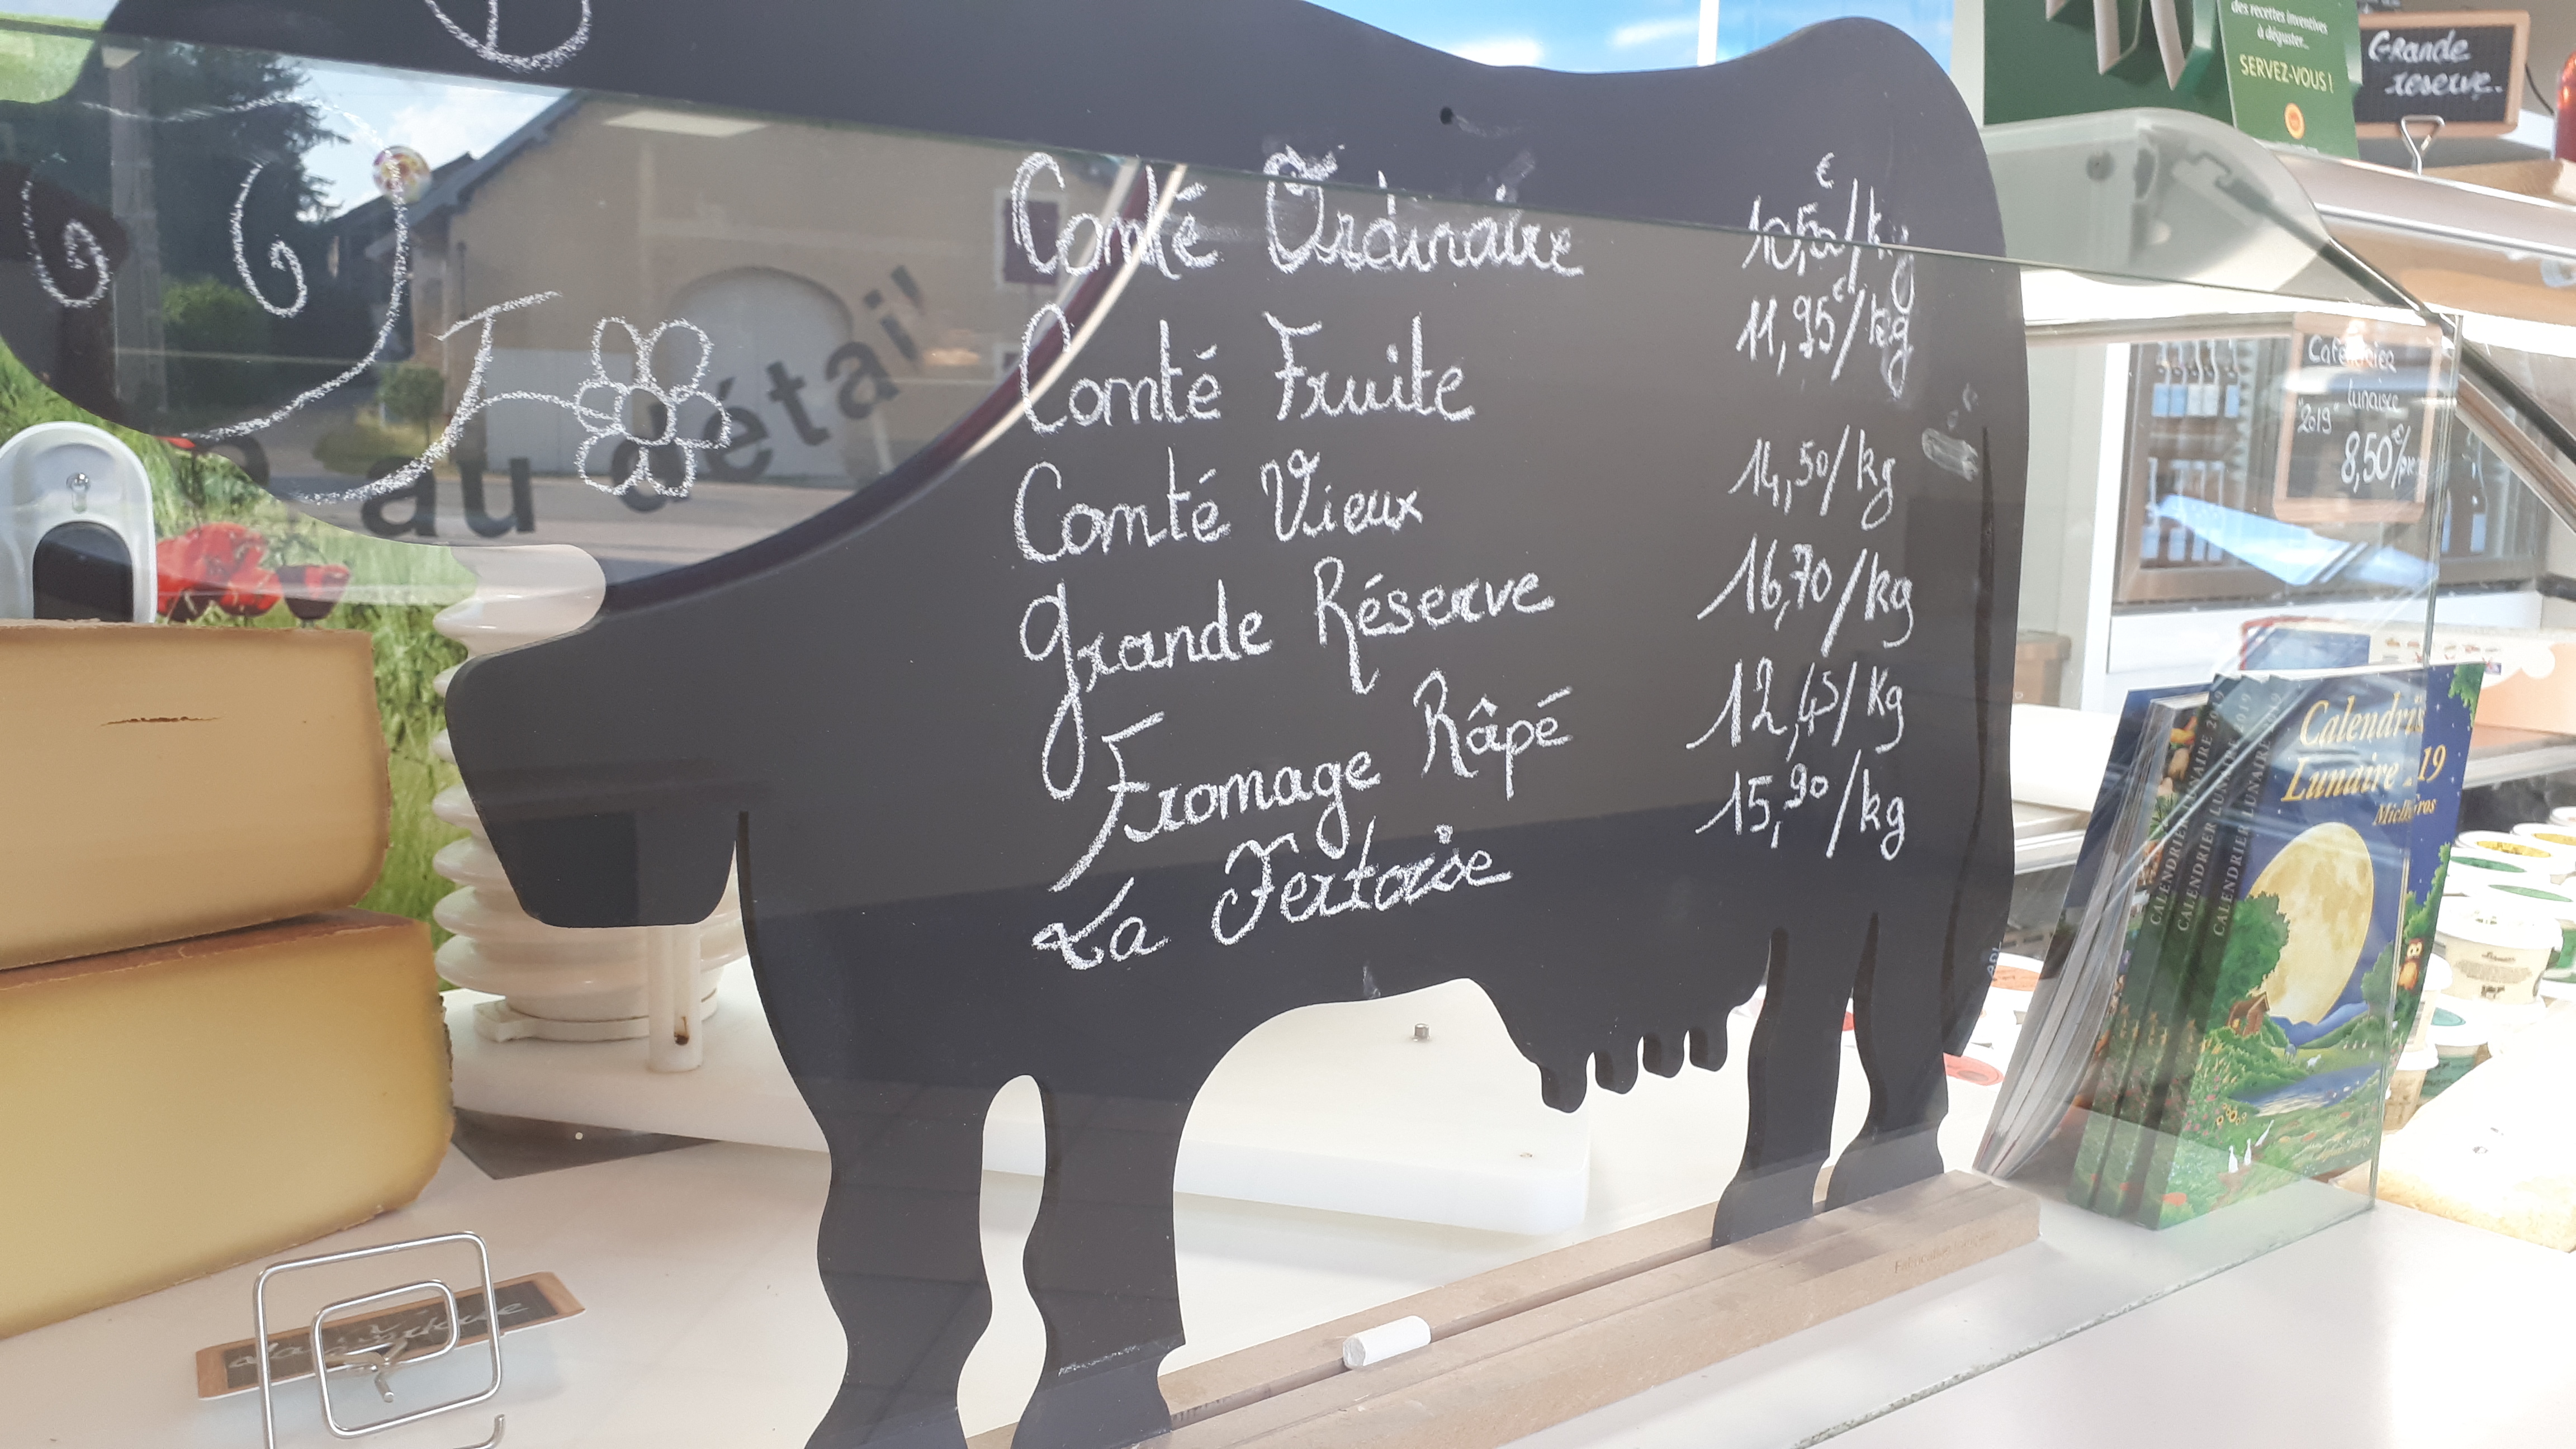 des recettes inventives
à déguster...
SERVEZ-VOUS !
Grande
reserve.
Comté Ordinaire 10,50€/kg
Comté Fruite 11,95€/kg
Comté Vieux 14,50/kg
Grande Réserve 16,70/kg
Fromage Râpé 12,45/Kg
La Fertoise 15,90/kg
au détail
Calendrier
lunaire
"2019"
8,50€/
Calendri
Lunaire 19
CALENDRIER LUNAIRE 2019
CALENDRIER LUNAIRE 2019
CALENDRIER LUNAIRE 2019